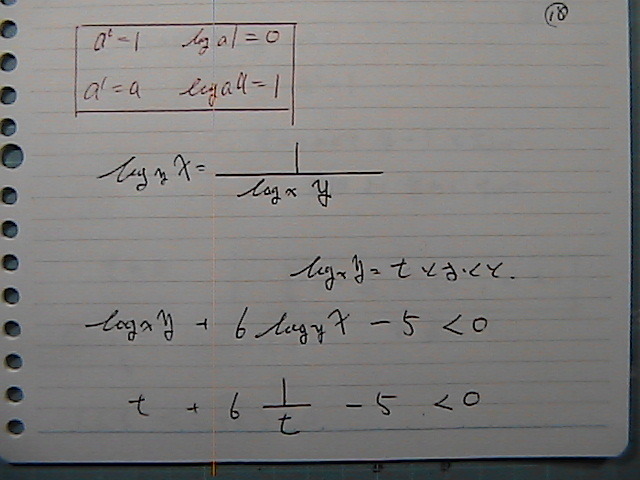 ⑱
a⁰=1 log a1=0
a¹=a log aa=1
log y X = 1 / log x y
log x y = t とおく.
log x y + 6 log y X − 5 < 0
t + 6 1/t − 5 < 0